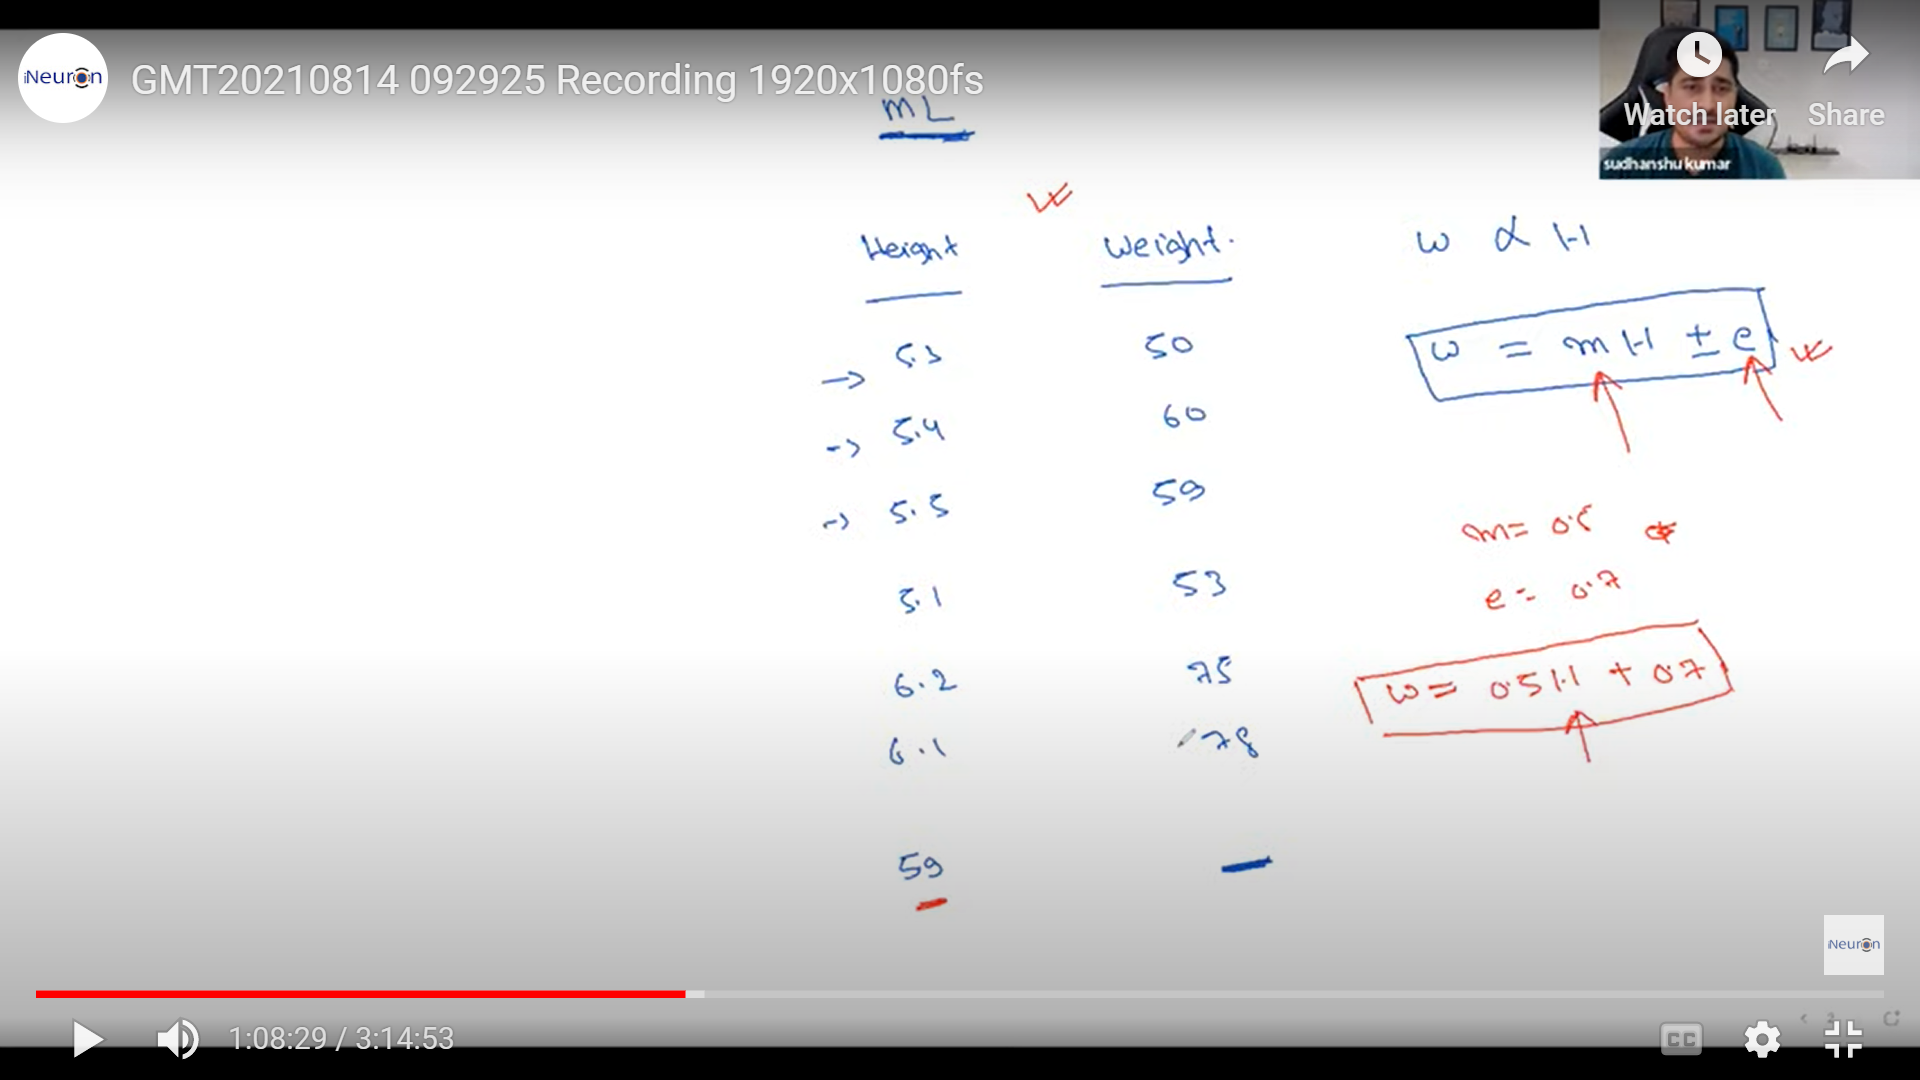 iNeuron
GMT20210814 092925 Recording 1920x1080fs
Watch later Share
sudhanshu kumar
ML
Height Weight.
5.3 50
5.4 60
5.5 59
5.1 53
6.2 75
6.1 78
59 —
W ∝ H
W = mH ± e
m= 0.5
e = 0.7
W = 0.5H + 0.7
iNeuron
1:08:29 / 3:14:53
CC